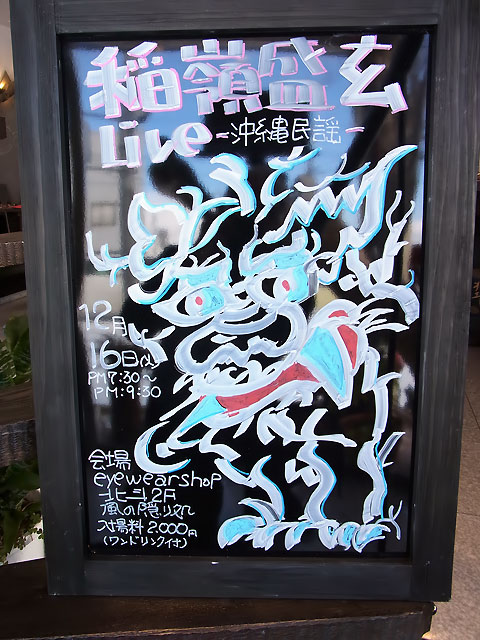 稲嶺盛玄
Live -沖縄民謡-
12月
16日(火)
PM7:30〜
PM:9:30
会場
eyewearshop
北斗2F
風の隠りれ
入場料2.000円
(ワンドリンク付)